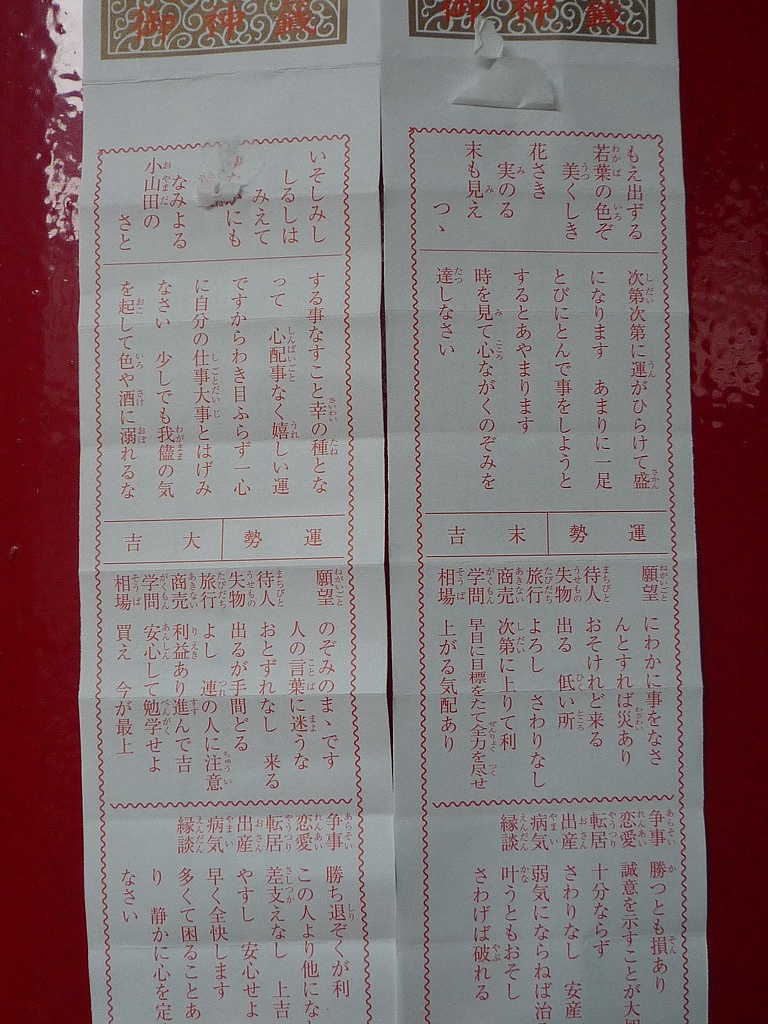 御神籤
もえ出ずる
若葉の色ぞ
美くしき
花さき
実のる
末も見え
つゝ
次第次第に運がひらけて盛
になります あまりに一足
とびにとんで事をしようと
するとあやまります
時を見て心ながくのぞみを
達しなさい
運勢 末吉
願望 にわかに事をなさ
んとすれば災あり
待人 おそけれど来る
失物 出る 低い所
旅行 よろし さわりなし
商売 次第に上りて利
学問 早目に目標をたて全力を尽せ
相場 上がる気配あり
争事 勝つとも損あり
恋愛 誠意を示すことが大
転居 十分ならず
出産 さわりなし 安産
病気 弱気にならねば治
縁談 叶うともおそし
さわげば破れる
御神籤
いそしみし
しるしは
みえて
にも
なみよる
小山田の
さと
する事なすこと幸の種とな
って 心配事なく嬉しい運
ですからわき目ふらず一心
に自分の仕事大事とはげみ
なさい 少しでも我儘の気
を起して色や酒に溺れるな
運勢 大吉
願望 のぞみのまゝです
人の言葉に迷うな
待人 おとずれなし 来る
失物 出るが手間どる
旅行 よし 連の人に注意
商売 利益あり進んで吉
学問 安心して勉学せよ
相場 買え 今が最上
争事 勝ち退ぞくが利
恋愛 この人より他にな
転居 差支えなし 上吉
出産 やすし 安心せよ
病気 早く全快します
縁談 多くて困ることあ
り 静かに心を定
なさい